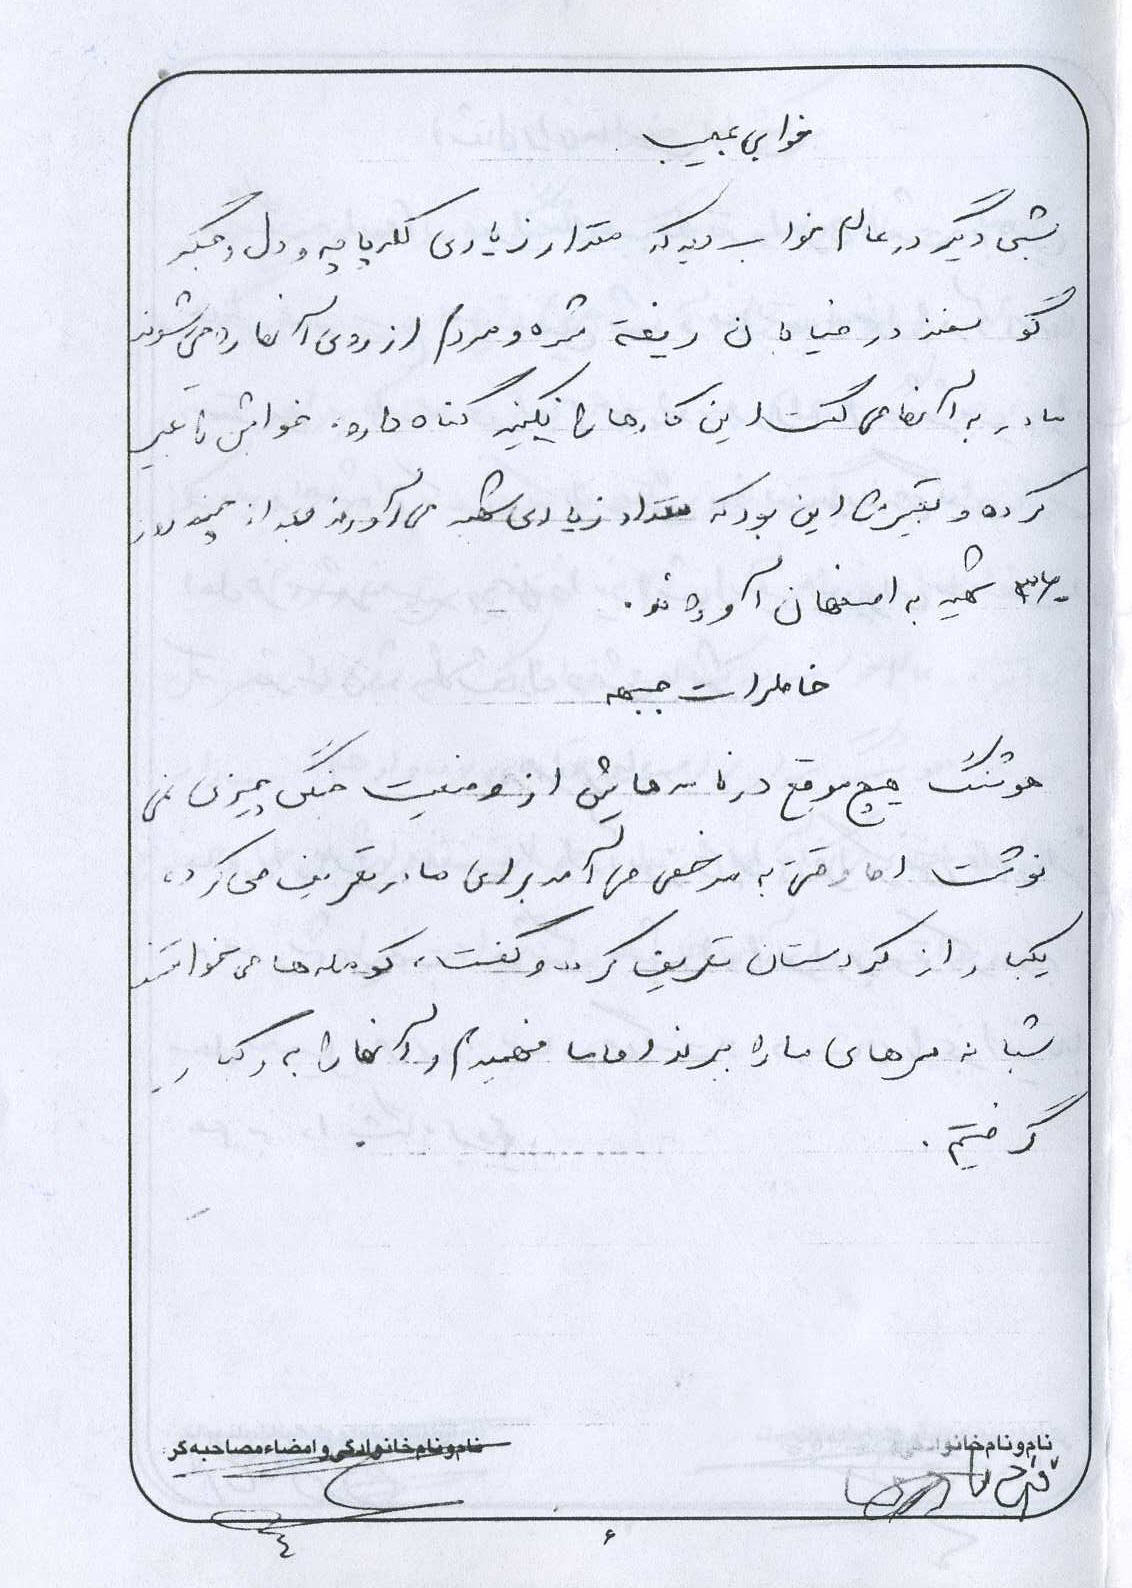 خوابی عجیب
شبی دیگر در عالم خواب دید که مقدار زیادی کله پاچه و دل و جگر
گوسفند در خیابان ریخته شده و مردم از روی آنها رد می شوند
مادر به آنها می گفت این کارها را نکنید گناه دارد. خوابش را تعبیر
کرده و تعبیرش این بود که مقداد زیادی شهید می آورند بعد از چند روز
۳۷۰ شهید به اصفهان آورده شد.
خاطرات جبهه
هوشنگ هیچ موقع در نامه هایش از وضعیت جنگی چیزی نمی
نوشت اما وقتی به مرخصی می آمد برای مادر تعریف می کرد،
یکبار از کردستان تعریف کرد و گفت، کومله ها می خواستند
شبانه سرهای ما را ببرند اما ما فهمیدیم و آنها را به رگبار
گرفتیم.
نام و نام خانوادگی و امضاء مصاحبه گر
نام و نام خانوادگی
۶
٤